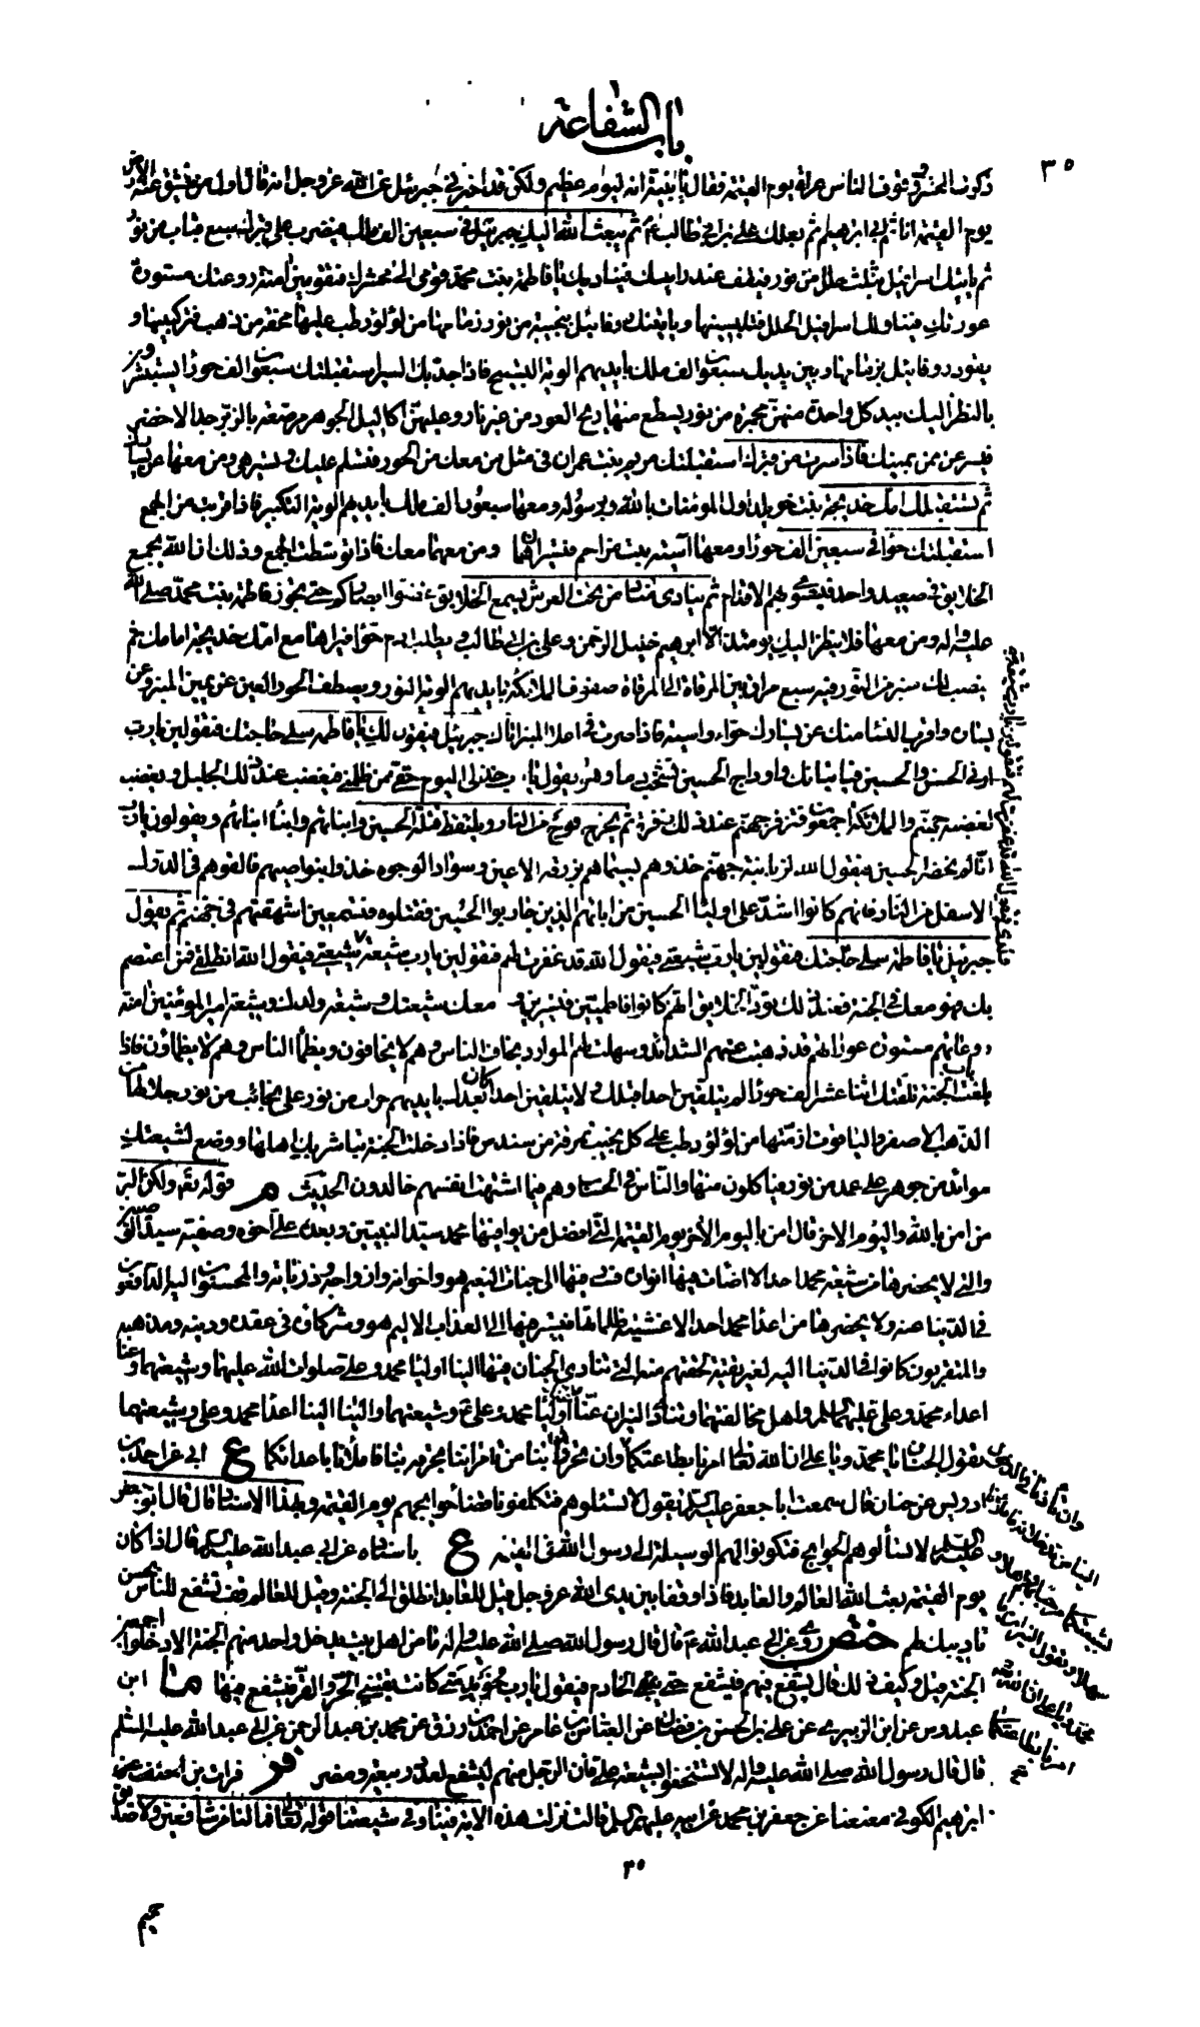 باب الشفاعة
٣٥
ذكرت المحشر ووقوف الناس عراة يوم القيمة فقال يا بنية انه ليوم عظيم ولكن قد اخبرني جبرئيل عن الله عز وجل انه قال اول من تنشق عنه الارض
يوم القيمة انا ثم ابي ابرهيم ثم بعلك علي بن ابي طالب ثم يبعث الله اليك جبرئيل في سبعين الف ملك فيضرب على قبرك سبع قباب من نور
ثم ياتيك اسرافيل بثلث حلل من نور فيقف عند راسك فيناديك يا فاطمة بنت محمد قومي الى محشرك فتقومين امنة روعتك مستورة
عورتك فيناولك اسرافيل الحلل فتلبسينها وياتيك روفائيل بنجيبة من نور زمامها من لؤلؤ رطب عليها محفة من ذهب فتركبينها و
يقود روفائيل بزمامها وبين يديك سبعون الف ملك بايديهم الوية التسبيح فاذا جد بك السير استقبلتك سبعون الف حوراء يستبشرون
بالنظر اليك بيد كل واحدة منهن مجمرة من نور يسطع منها ريح العود من غير نار وعليهن اكاليل الجوهر مرصعة بالزبرجد الاخضر
فيسرن عن يمينك فاذا سرت من قبرك استقبلتك مريم بنت عمران في مثل من معك من الحور فتسلم عليك وتسير هي ومن معها عن يسارك
ثم تستقبلك امك خديجة بنت خويلد اول المؤمنات بالله وبرسوله ومعها سبعون الف ملك بايديهم الوية التكبير فاذا قربت من الجمع
استقبلتك حواء في سبعين الف حوراء ومعها اسية بنت مزاحم فتسيران هما ومن معهما معك فاذا توسطت الجمع وذلك ان الله يجمع
الخلايق في صعيد واحد فيستوي بهم الاقدام ثم ينادي مناد من تحت العرش يسمع الخلايق غضوا ابصاركم حتى تجوز فاطمة بنت محمد صلى الله
عليه واله ومن معها فلا ينظر اليك يومئذ الا ابرهيم خليل الرحمن وعلي بن ابي طالب ويطلب ادم حوا فيراها مع امك خديجة امامك ثم
ينصب لك منبر من النور فيه سبع مراق بين المرقاة الى المرقاة صفوف الملائكة بايديهم الوية النور ويصطف الحور العين عن يمين المنبر وعن
يساره واقرب النساء منك عن يسارك حواء واسية فاذا صرت في اعلا المنبر اتاك جبرئيل فيقول لك يا فاطمة سلي حاجتك فتقولين يا رب
ارني الحسن والحسين فياتيانك واوداج الحسين تشخب دما وهو يقول يا رب خذ لي اليوم حقي ممن ظلمني فيغضب عند ذلك الجليل ويغضب
لغضبه جهنم والملائكة اجمعون فتزفر جهنم عند ذلك زفرة ثم يخرج فوج من النار ويلتقط قتلة الحسين وابنائهم وابناء ابنائهم ويقولون يا رب
انا لم نحضر الحسين فيقول الله لزبانية جهنم خذوهم بسيماهم بزرقة الاعين وسواد الوجوه خذوا بنواصيهم فالقوهم في الدرك
الاسفل من النار فانهم كانوا اشد على اولياء الحسين من ابائهم الذين حاربوا الحسين فقتلوه فتسمعين اشهقتهم في جهنم ثم يقول
جبرئيل يا فاطمة سلي حاجتك فتقولين يا رب شيعتي فيقول الله قد غفرت لهم فتقولين يا رب شيعة شيعتي فيقول الله انطلقي فمن اعتصم
بك فهو معك في الجنة فعند ذلك تود الخلايق انهم كانوا فاطميين فتسيرين ومعك شيعتك وشيعة ولدك وشيعة امير المؤمنين امنة
روعاتهم مستورة عوراتهم قد ذهبت عنهم الشدائد وسهلت لهم الموارد يخاف الناس وهم لا يخافون ويظمأ الناس وهم لا يظمأون فاذا
بلغت باب الجنة تلقتك اثنا عشر الف حوراء لم يتلقين احدا قبلك ولا يتلقين احدا كان بعدك بايديهم حراب من نور على نجائب من نور جلالها من
الذهب الاصفر والياقوت ازمتها من لؤلؤ رطب على كل نجيب نمرقة من سندس فاذا دخلت الجنة تباشر بك اهلها ووضع لشيعتك
موائد من جوهر على عمد من نور فياكلون منها والناس في الحساب وهم فيما اشتهت انفسهم خالدون الحديث م قوله تعالى ولكن البر
من امن بالله واليوم الاخر قال امن باليوم الاخر يوم القيمة التي افضل من يوافيها محمد سيد النبيين وبعده علي اخوه وصفيه سيد الوصيين
والتي لا يحضرها من شيعة محمد احد الا اضاءت فيها انواره فسرى فيها الى جنات النعيم هو واخوانه وازواجه وذرياته والمحسنون اليه الدافعون
في الدنيا عنه ولا يحضرها من اعداء محمد احد الا غشيته ظلماتها فيسير فيها الى العذاب الاليم هو وشركاؤه في عقده ودينه ومذهبه
والمتقربون كانوا في الدنيا اليه لغير تقية لحقتهم منه التي تنادي الجنان فيها الينا اولياء محمد وعلي صلوات الله عليهما وشيعتهما وعنا
اعداء محمد وعلي عليهما السلم واهل مخالفتهما وتنادي النيران عنا اولياء محمد وعلي وشيعتهما والينا الينا اعداء محمد وعلي وشيعتهما
تقول الجنان يا محمد ويا علي ان الله تعالى امرنا بطاعتكما
ع ابي عن احمد بن
ادريس عن حنان قال سمعت ابا جعفر عليه السلم يقول لا تسئلوهم فتكلفونا قضاء حوائجهم يوم القيمة وبهذا الاسناد قال قال ابو جعفر
عليه السلم لا تسألوهم الحوائج فتكونوا لهم الوسيلة الى رسول الله في القيمة ع باسناده عن ابي عبد الله عليه السلم قال اذا كان
يوم القيمة بعث الله العالم والعابد فاذا وقفا بين يدي الله عز وجل قيل للعابد انطلق الى الجنة وقيل للعالم قف تشفع للناس بحسن
تاديبك لهم ختص روي عن ابي عبد الله قال قال رسول الله صلى الله عليه واله
الجنة قيل وكيف ذلك قال يشفع فيهم فيشفع حتى يبقى الخادم فيقول يا رب خويدمتي كانت تقيني الحر والقر فيشفع فيها ما ابن
عبدوس عن ابن الزبير عن علي بن الحسن بن فضال عن العباس بن عامر عن احمد بن رزق عن محمد بن عبد الرحمن عن ابي عبد الله عليه السلم
قال قال رسول الله صلى الله عليه واله لا تستخفوا بشيعة علي فان الرجل منهم ليشفع لعدد ربيعة ومضر فر فرات بن
ابرهيم الكوفي معنعنا عن جعفر بن محمد عن ابيه عليهم السلم قال نزلت هذه الاية فينا وفي شيعتنا قوله تعالى فما لنا من شافعين ولا صديق
٣٥
حميم